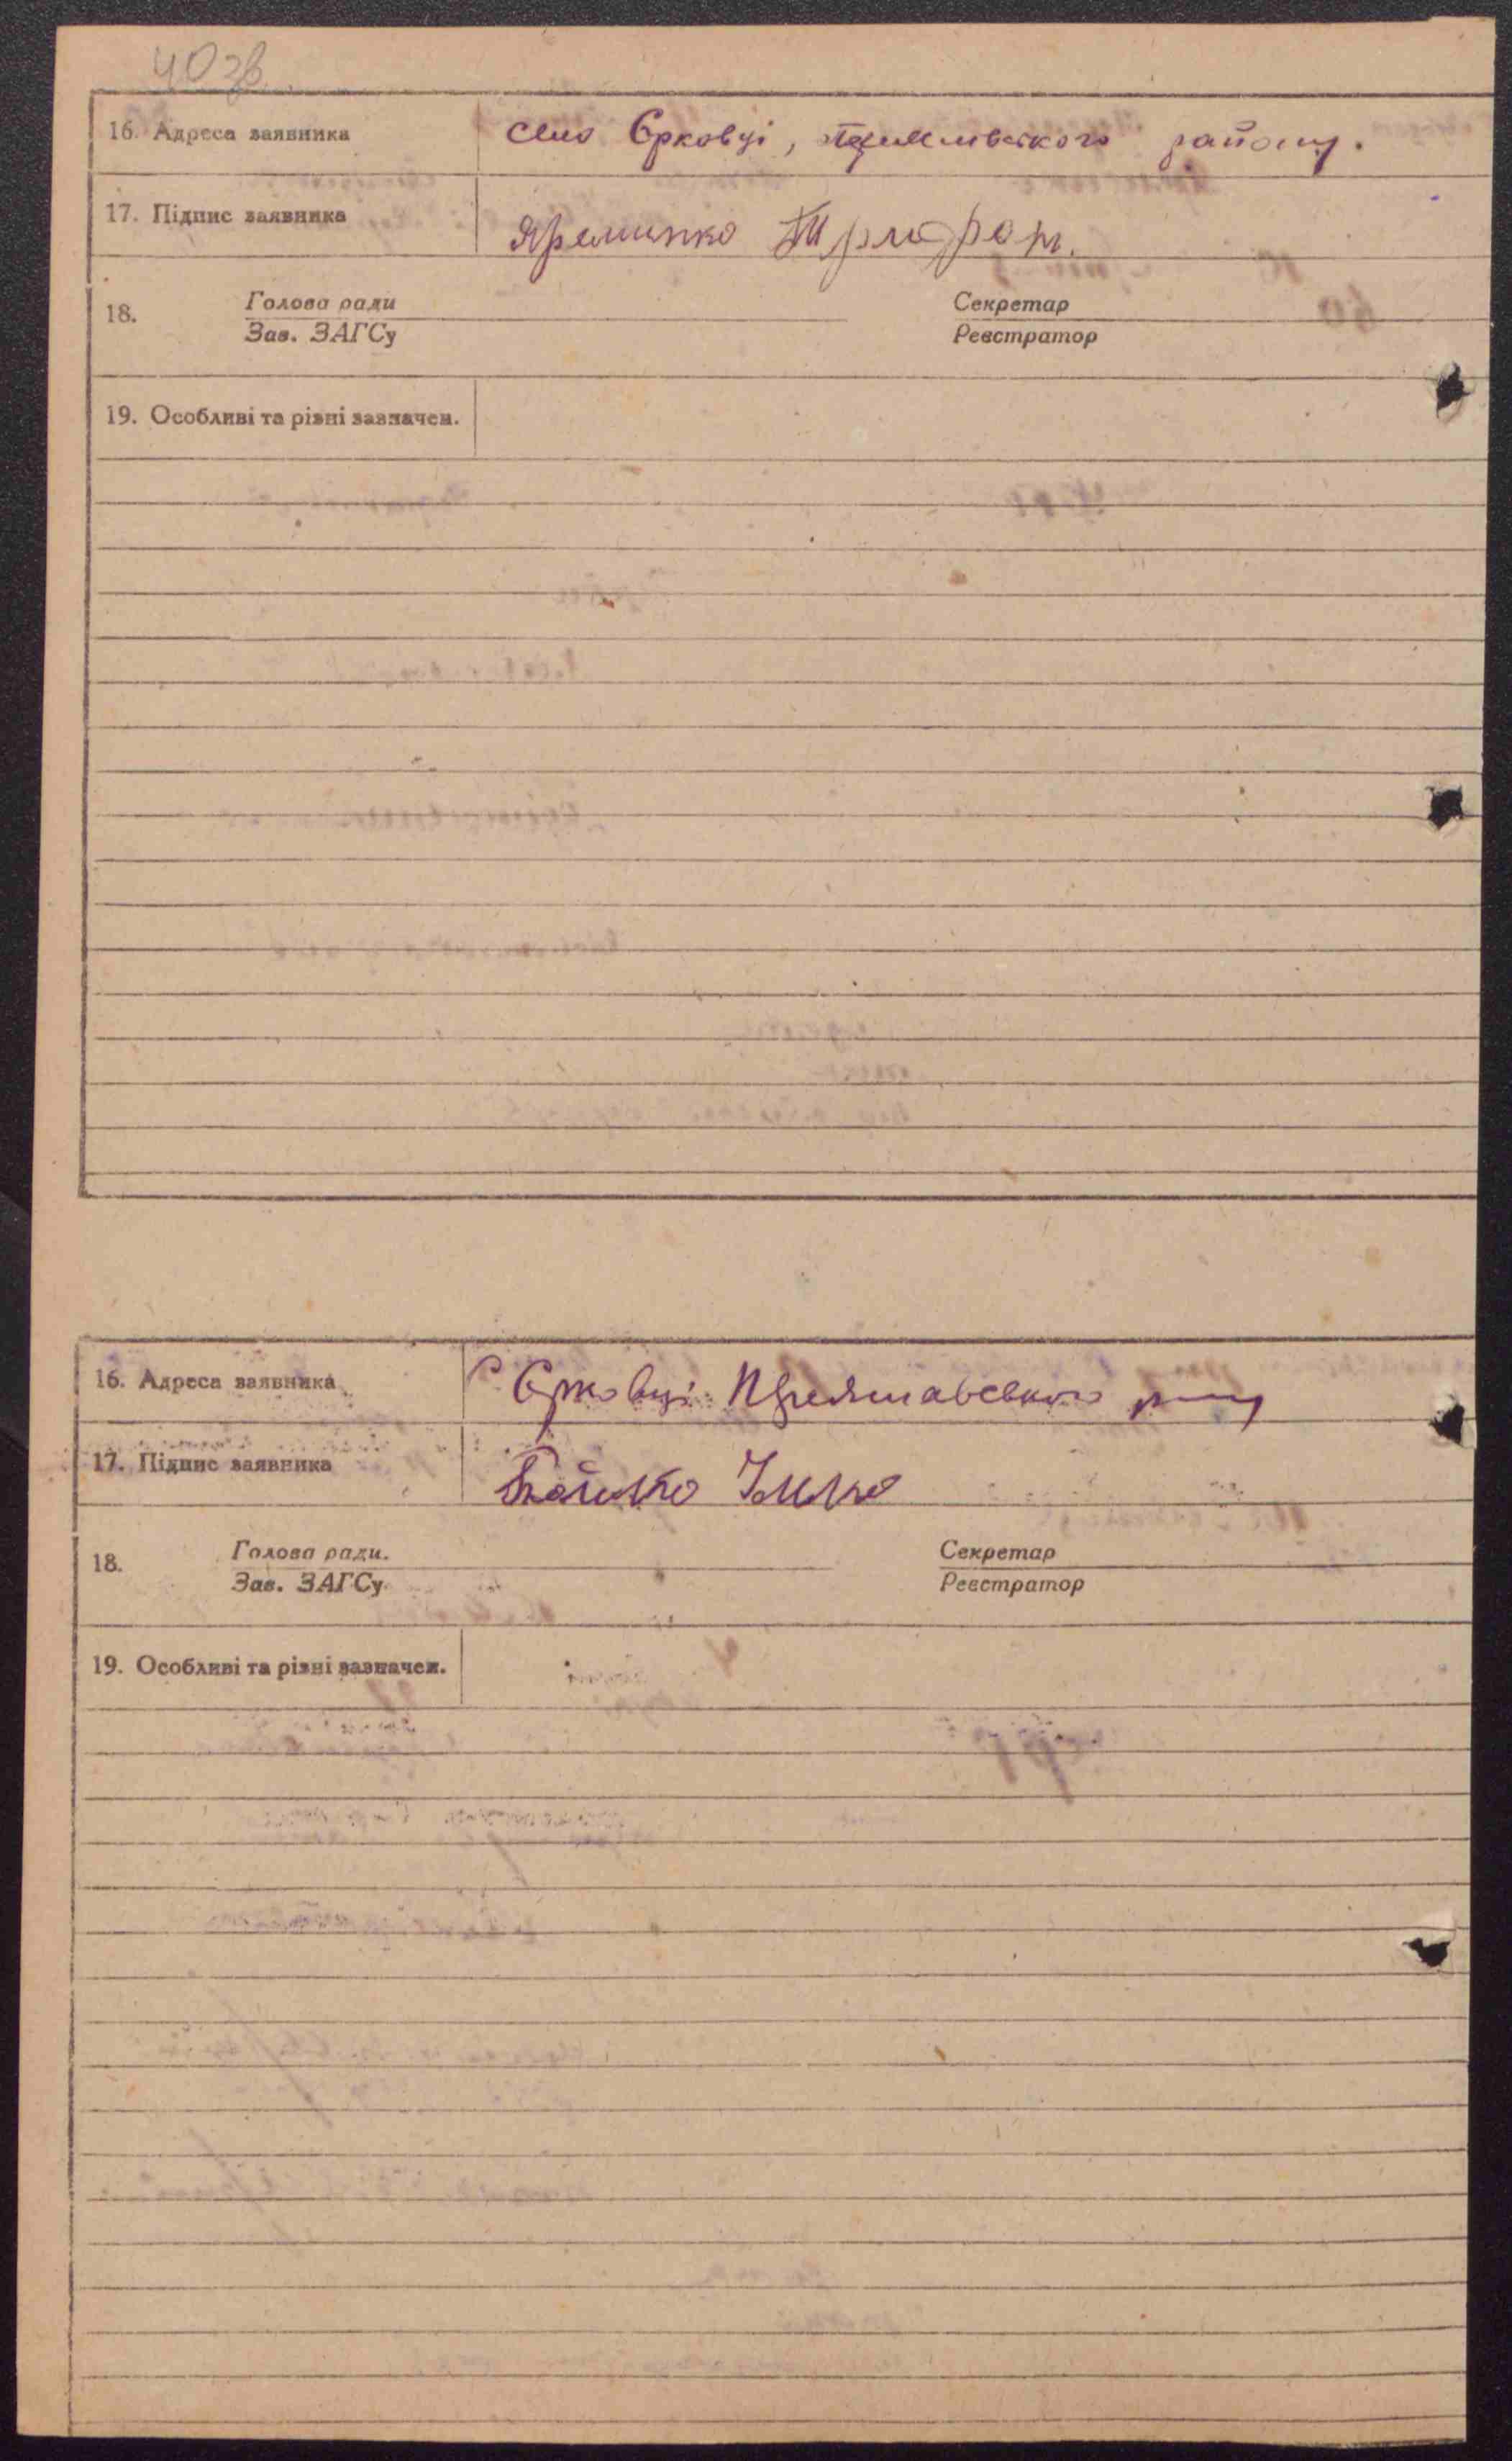 40 зв
16. Адреса заявника село Єрковці, району.
17. Підпис заявника Яременко
18. Голова ради Секретар
Зав. ЗАГСу Реєстратор
19. Особливі та різні зазначен.
16. Адреса заявника С. Єрковці Переяславського р-ну
17. Підпис заявника Бойко
18. Голова ради. Секретар
Зав. ЗАГСу Реєстратор
19. Особливі та різні зазначен.